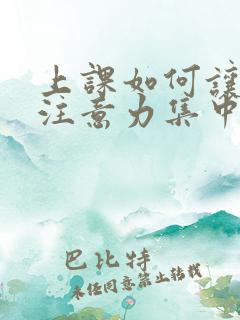 上課如何讓
注意力集中
巴比特
未經同意禁止轉載